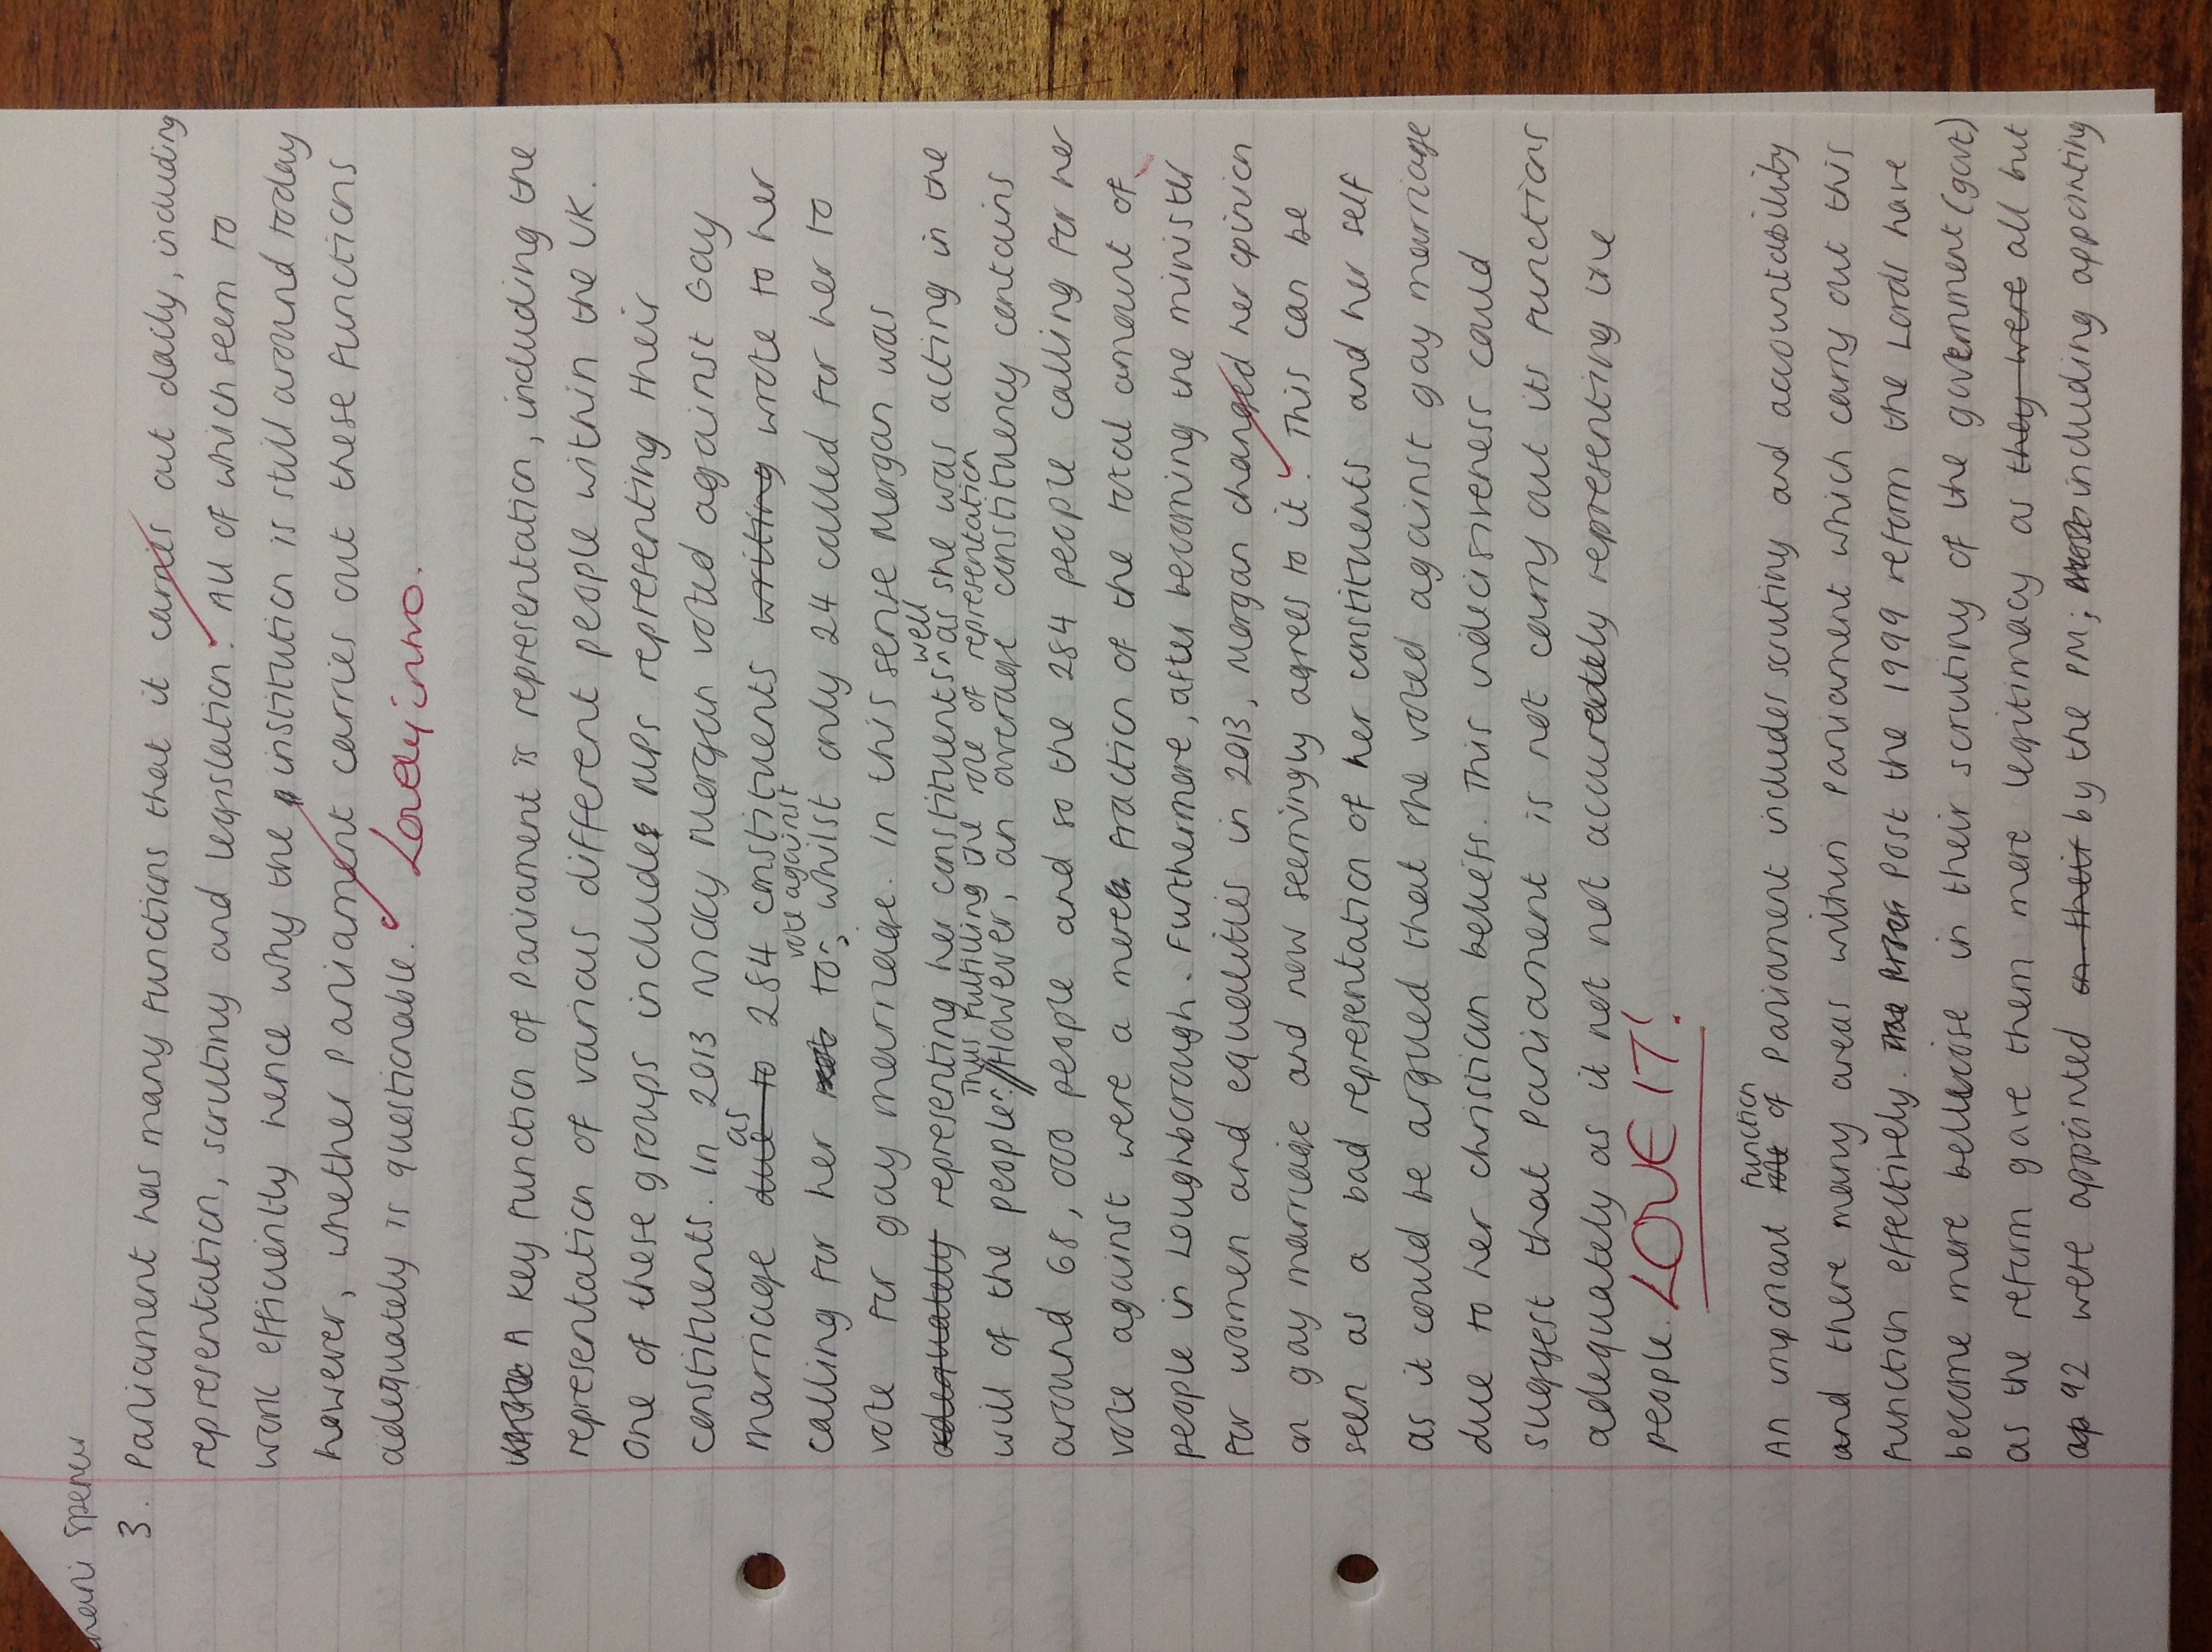 3. Parliament has many functions that it carries out daily, including
representation, scrutiny and legislation. All of which seem to
work efficiently hence why the institution is still around today
however, whether Parliament carries out these functions
adequately is questionable. Lovely intro.
A key function of Parliament is representation, including the
representation of various different people within the UK.
One of these groups includes MPs representing their
constituents. In 2013 Nicky Morgan voted against Gay
as
marriage due to 284 constituents writing wrote to her
vote against
calling for her to; whilst only 24 called for her to
vote for gay marriage. In this sense Morgan was
well
adequately representing her constituents as she was acting in the
Thus fulfilling the role of representation
will of the people. // However, an average constituency contains
around 68,000 people and so the 284 people calling for her
vote against were a mere fraction of the total amount of
people in Loughborough. Furthermore, after becoming the minister
for women and equalities in 2013, Morgan changed her opinion
on gay marriage and now seemingly agrees to it. This can be
seen as a bad representation of her constituents and her self
as it could be argued that she voted against gay marriage
due to her christian beliefs. This indecisiveness could
suggest that Parliament is not carry out its functions
adequately as it not not accurately representing the
people. LOVE IT!
function
An important role of Parliament includes scrutiny and accountability
and there many areas within Parliament which carry out this
function effectively. Post the 1999 reform the Lords have
become more bellicose in their scrutiny of the government (govt)
as the reform gave them more legitimacy as they were all but
ap 92 were appointed on their by the PM; including appointing